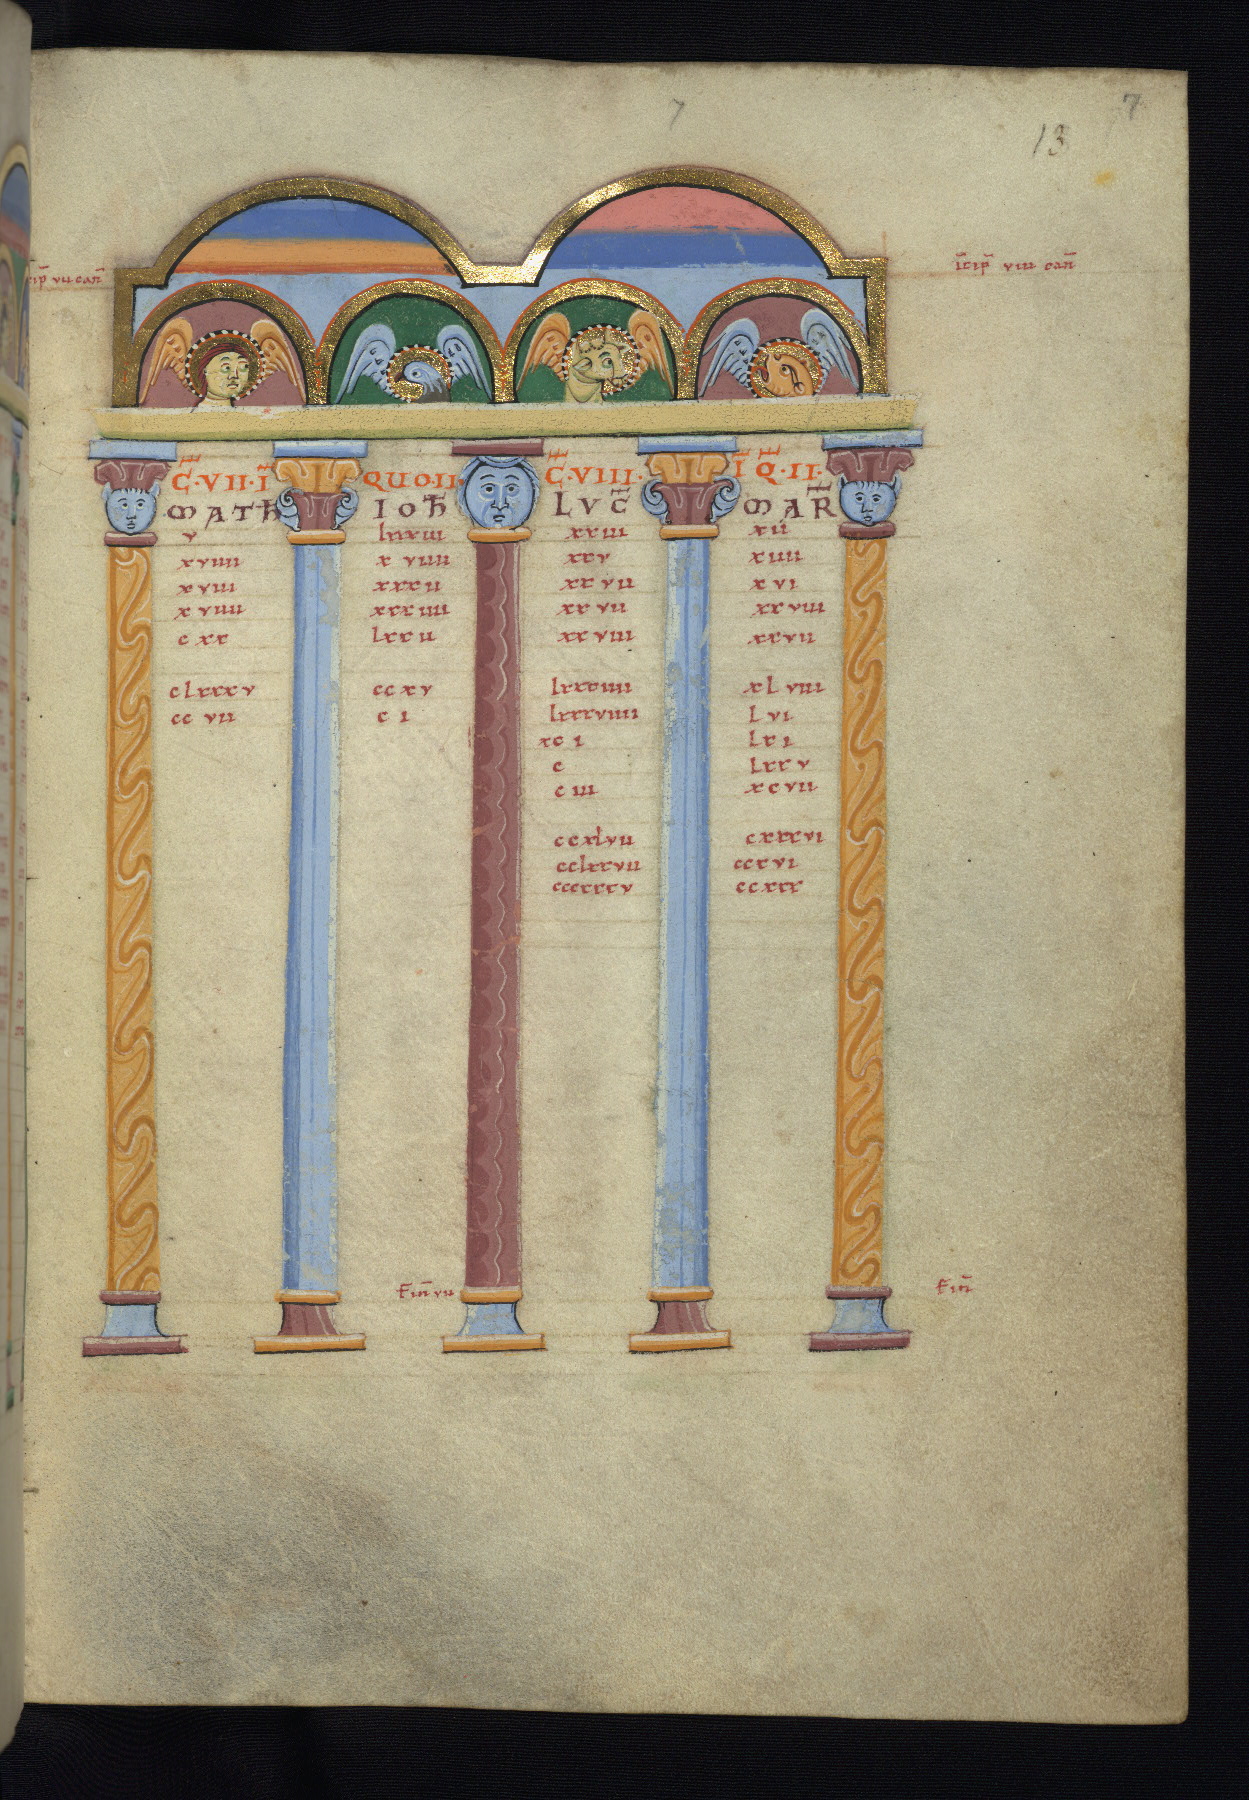 7
7
13
cip̄ vii can̄
īcip̄ viii can̄
C̄·VII·Ī QUO·II· C̄·VIII· Ī Q̄·II·
MATH IOH LVC̄ MAR̄
v lxxxiii xxiii xii
xviiii xviiii xxv xiiii
xviii xxxii xxvii xvi
xviiii xxxiiii xxvii xxviii
cxx lxxii xxviii xxvii
clxxxv ccxv lxxxiiii xlviii
ccvii ci lxxxviiii lvi
xci lxi
c lxxv
ciii xcvii
ccxlvii cxxxvi
cclxxvii ccxvi
cccxxxv ccxxx
Fin̄ vii
Fin̄